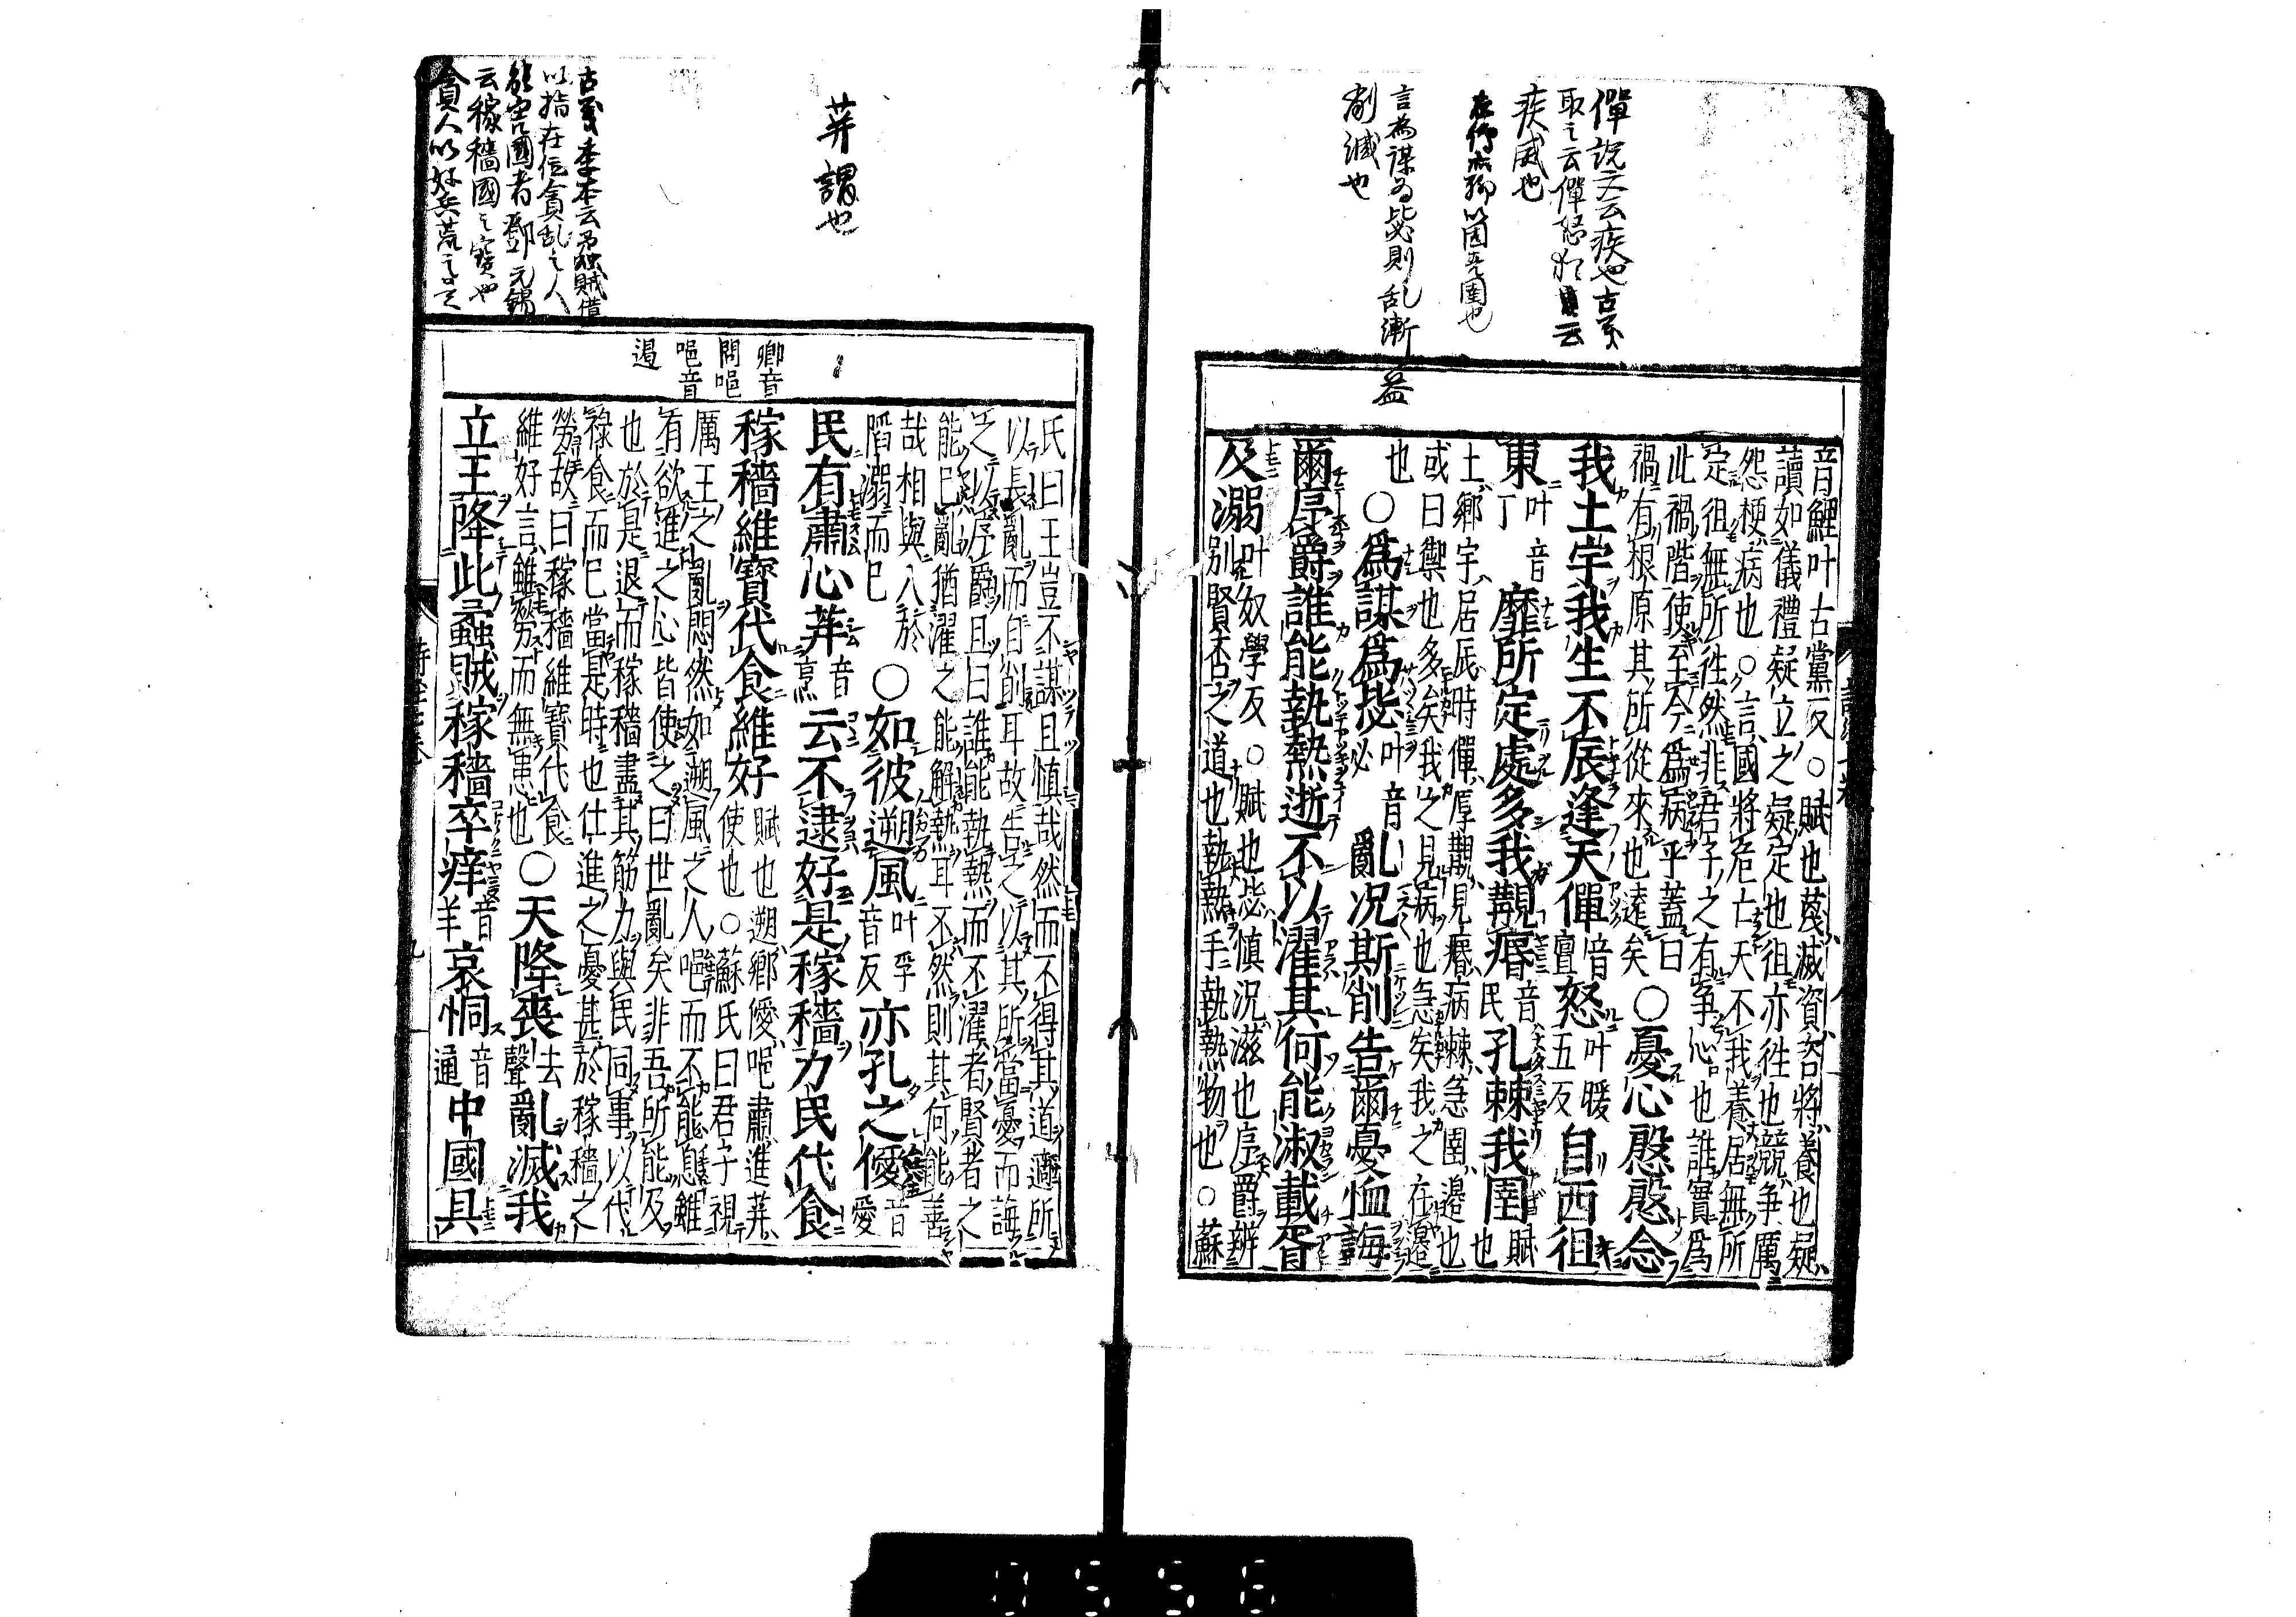 僤説文云疾也古義
取之云僤怒猶云
疾威也
言為謀為毖則乱漸
削滅也
益
音鯉叶古黨反○賦也蔑滅資咨將養也疑
讀如儀禮疑立之疑定也徂亦往也競爭厲
怨梗病也○言國將危亡天不我養居無所
定徂無所往然非君子之有爭心也誰實爲
此禍階使至今爲病乎蓋曰
禍有根原其所從來也遠矣○憂心慇慇念
我土宇我生不辰逢天僤音亶怒叶暖五反自西徂
東叶音丁靡所定處多我覯痻音民孔棘我圉賦也
土鄉宇居辰時僤厚覯見痻病棘急圉邊也
或曰禦也多矣我之見病也急矣我之在邊
也○爲謀爲毖叶音必亂況斯削告爾憂恤誨
爾序爵誰能執熱逝不以濯其何能淑載胥
及溺叶奴學反○賦也毖慎況滋也序爵辨
別賢否之道也執熱手執熱物也○蘇
荓謂也
古義李本云蟊賊借
以指在位貪乱之人
能害國者鄧元錫
云稼穡國之寶也
卿音
問唈
唈音
遏
氏曰王豈不謀且慎哉然而不得其道適所
以長亂而自削耳故告之以其所當憂而誨
之以序爵且曰誰能執熱而不濯者賢者之
能已亂猶濯之能解熱耳不然則其何能善
哉相與入於
陷溺而已○如彼遡風叶孚音反亦孔之僾音愛
民有肅心荓音烹云不逮好是稼穡力民代食
稼穡維寶代食維好賦也遡鄉僾唈肅進荓
使也○蘇氏曰君子視
厲王之亂悶然如遡風之人唈而不能息雖
有欲進之心皆使之曰世亂矣非吾所能及
也於是退而稼穡盡其筋力與民同事以代
祿食而已當是時也仕進之憂甚於稼穡之
勞故曰稼穡維寶代食
維好言雖勞而無患也○天降喪去聲亂滅我
立王降此蟊賊稼穡卒痒音羊哀恫音通中國具